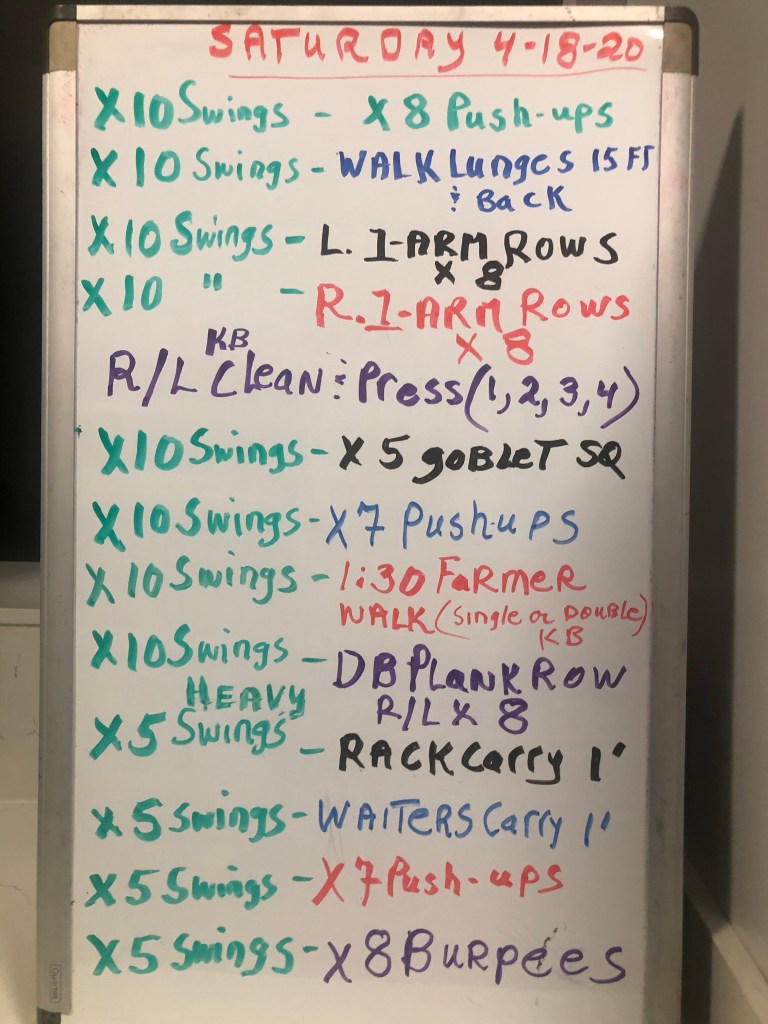 SATURDAY 4-18-20
X10 Swings - X 8 Push-ups
X 10 Swings - WALK Lunges 15 FT
& BacK
X10 Swings - L. 1-ARM ROWS
X 8
X 10 " - R. 1-ARM ROWS
X 8
KB
R/L CleAN & Press (1, 2, 3, 4)
X10 Swings - X 5 goBLeT SQ
X10 Swings - X 7 Push-uPS
X 10 Swings - 1:30 FaRmeR
WALK (Single or DOUBLe)
KB
X10 Swings - DB PLanK Row
R/L X 8
HEAVY
X 5 Swings - RACK Carry 1'
X 5 Swings - WAITERS Carry 1'
X 5 Swings - X 7 Push-ups
X 5 Swings - X 8 BuRpees